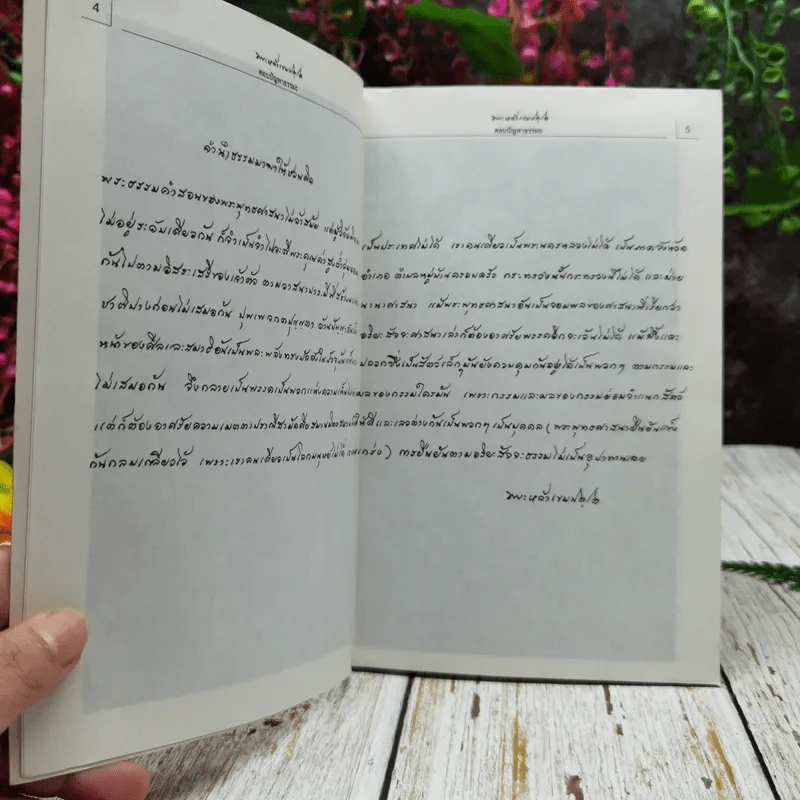 4
พระหล้าเขมปัตโต
ตอบปัญหาธรรมะ
พระธรรมคำสอนของพระพุทธศาสนาไม่ล้าสมัย แต่ผู้
ไม่อยู่ระดับเดียวกัน ก็จำเป็นจำไป
กันไปตามอิสระเสรีของเจ้าตัว ตามวาสนาบารมี
ชาติปางก่อนไม่เสมอกัน
หน้าของศีลและสมาธิอันเป็นพละพลัง
ไม่เสมอกัน จึงกลายเป็นพรรคเป็นพวกแห่งความ
แต่ก็ต้องอาศรัยความเมตตาปราณีสามัคคี
กันกลมเกลียวไว้ เพราะเราคนเดียวเป็นโลกมนุษย์ไม่ได้
พระหล้าเขมปัตโต
ตอบปัญหาธรรมะ
5
เป็นประเทศไม่ได้ เราคนเดียวเป็นพระนครหลวงไม่ได้ เป็นภาคจังหวัด
อำเภอ ตำบลหมู่บ้านครอบครัว กระทรวงนั้นกระทรวงนี้ไม่ได้ และฝ่าย
นานาศาสนา แม้พระพุทธศาสนาอันเป็นจอมพลของศาสนาที่เรียกว่า
อริยะสัจจะศาสนาเล่าก็ต้องอาศรัยพรรคอีกจะเว้นไม่ได้ แม้ผึ้งและ
ปลวกซึ่งเป็นสัตว์เล็กมันยังควบคุมกันอยู่ได้เป็นพวกๆ ตามกรรมและ
ผลของกรรมใครมัน เพราะกรรมและผลของกรรมย่อมจำแนกสัตว์
ให้ดีและเลวต่างกันเป็นพวกๆ เป็นบุคคล (พระพุทธศาสนายืนยันแข็ง
แกร่ง) การยืนยันตามอริยะสัจจะธรรมไม่เป็นอุปาทานเลย
พระหล้าเขมปัตโต